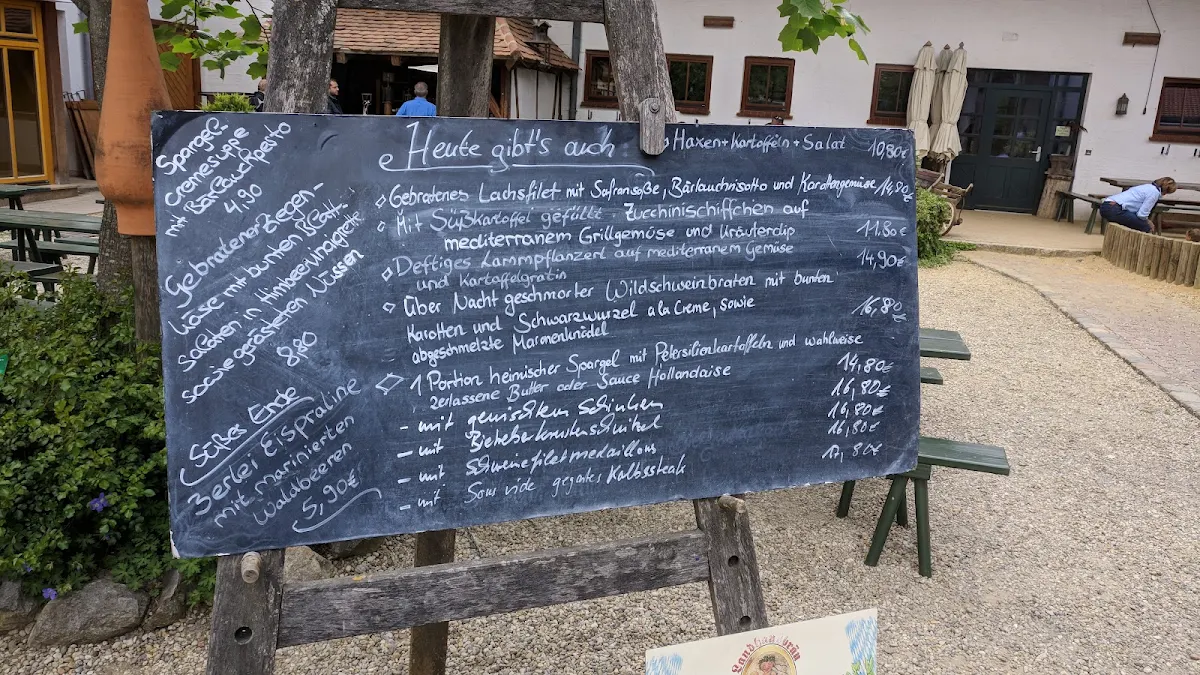 Spargel-
cremesuppe
mit Bärlauchpesto
4,90
Gebratener Ziegen-
käse mit bunten Blatt-
salaten in Himbeervinaigrette
sowie gerösteten Nüssen
8,80
Süßes Ende
3erlei Eispraline
mit marinierten
Waldbeeren
5,90€
Heute gibt's auch
Haxen + Kartoffeln + Salat 10,80€
Gebratenes Lachsfilet mit Safransoße, Bärlauchrisotto und Karottengemüse 14,90€
Mit Süßkartoffel gefüllt Zucchinischiffchen auf
mediterranem Grillgemüse und Kräuterdip 11.80€
Deftiges Lammpflanzerl auf mediterranem Gemüse
und Kartoffelgratin 14,90€
Über Nacht geschmorter Wildschweinbraten mit bunten
Karotten und Schwarzwurzel a la Creme, sowie
abgeschmelzte Marmenknödel 16,80€
1 Portion heimischer Spargel mit Petersilienkartoffeln und wahlweise
zerlassene Butter oder Sauce Hollandaise 14.80€
- mit gemischtem Schinken 16,80€
- mit Bieberkreitenschnitzel 16,80€
- mit Schweinefiletmedaillons 16,80€
- mit Sous vide gegartes Kalbssteak 17,80€
Landhausbräu